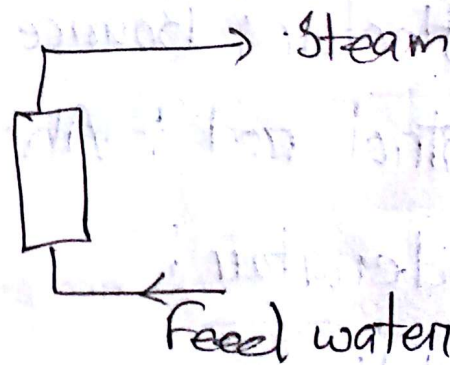 Steam
Feed water